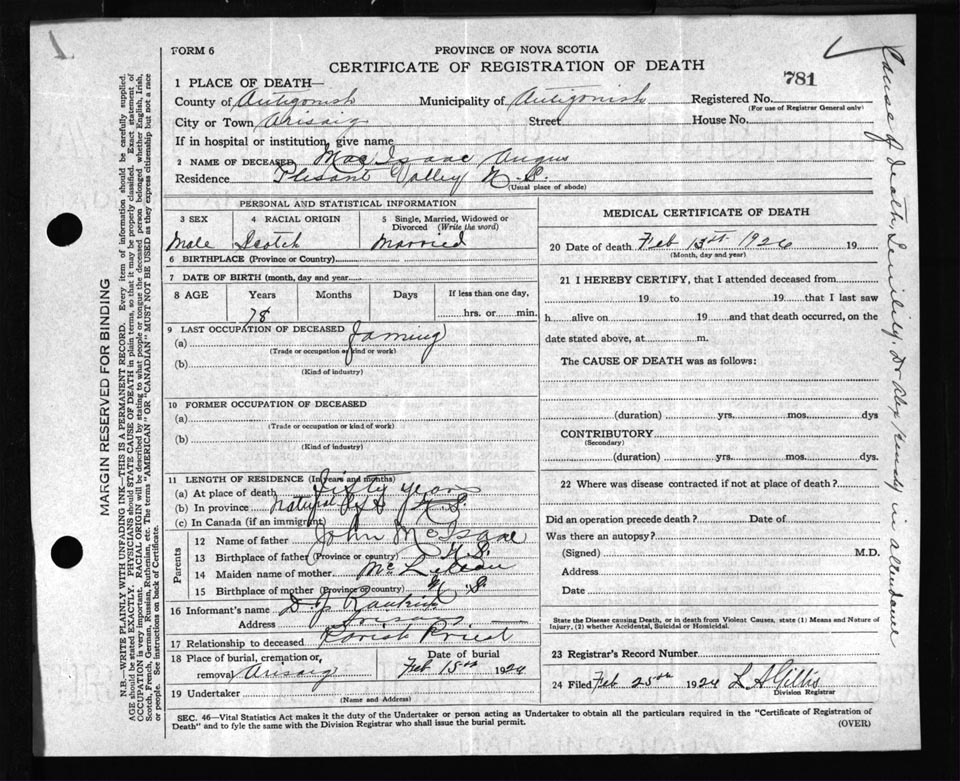 FORM 6
PROVINCE OF NOVA SCOTIA
CERTIFICATE OF REGISTRATION OF DEATH
781
1 PLACE OF DEATH—
County of Antigonish Municipality of Antigonish Registered No.
(For use of Registrar General only)
City or Town Arisaig Street House No.
If in hospital or institution, give name
2 NAME OF DECEASED Mac Isaac Angus
Residence Plesant Valley N.S.
(Usual place of abode)
PERSONAL AND STATISTICAL INFORMATION
3 SEX 4 RACIAL ORIGIN 5 Single, Married, Widowed or Divorced (Write the word)
Male Scotch Married
6 BIRTHPLACE (Province or County)
7 DATE OF BIRTH (month, day and year)
8 AGE Years Months Days If less than one day,
78 hrs. or min.
9 LAST OCCUPATION OF DECEASED
(a) Farming
(Trade or occupation or kind or work)
(b)
(Kind of industry)
10 FORMER OCCUPATION OF DECEASED
(a)
(Trade or occupation or kind of work)
(b)
(Kind of industry)
11 LENGTH OF RESIDENCE (In years and months)
(a) At place of death fifty years
(b) In province N.S.
(c) In Canada (if an immigrant)
Parents
12 Name of father John McIsaac
13 Birthplace of father (Province or country) N.S.
14 Maiden name of mother
15 Birthplace of mother (Province or country) N S
16 Informant's name D J Rankin
Address Arisaig
17 Relationship to deceased Parish Priest
18 Place of burial, cremation, or removal Arisaig Date of burial Feb 15th 1926
19 Undertaker
(Name and Address)
MEDICAL CERTIFICATE OF DEATH
20 Date of death Feb 13th 1926 19
(Month, day and year)
21 I HEREBY CERTIFY, that I attended deceased from
19 to 19 that I last saw
h alive on 19 and that death occurred, on the
date stated above, at m.
The CAUSE OF DEATH was as follows:
(duration) yrs. mos. dys
CONTRIBUTORY
(Secondary)
(duration) yrs. mos. dys.
22 Where was disease contracted if not at place of death?
Did an operation precede death? Date of
Was there an autopsy?
(Signed) M.D.
Address
Date
State the Disease causing Death, or in death from Violent Causes, state (1) Means and Nature of
Injury, (2) whether Accidental, Suicidal or Homicidal.
23 Registrar's Record Number
24 Filed Feb 25th 1926 L A Gillis
Division Registrar
SEC. 46—Vital Statistics Act makes it the duty of the Undertaker or person acting as Undertaker to obtain all the particulars required in the "Certificate of Registration of
Death" and to fyle the same with the Division Registrar who shall issue the burial permit.
(OVER)
MARGIN RESERVED FOR BINDING
N.B.—WRITE PLAINLY WITH UNFADING INK—THIS IS A PERMANENT RECORD. Every item of information should be carefully supplied.
AGE should be stated EXACTLY. PHYSICIANS should STATE CAUSE OF DEATH in plain terms, so that it may be properly classified. Exact statement of
OCCUPATION is very important. RACIAL ORIGIN will be described by stating to what people or tongue the deceased person belonged whether English, Irish,
Scotch, French, German, Russian, Ruthenian, etc. The terms "AMERICAN" OR "CANADIAN" MUST NOT BE USED as they express citizenship but not a race
or people. See instructions on back of Certificate.
Cause of death, Senility. Dr Alex Kennedy in attendance